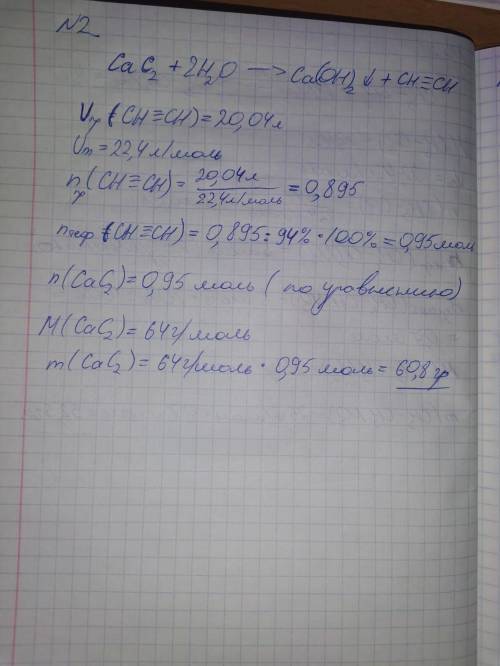 N2
CaC₂ + 2H₂O → Ca(OH)₂↓ + CH≡CH
Vпр (CH≡CH) = 20,04л
Vm = 22,4 л/моль
nпр (CH≡CH) = 20,04л / 22,4л/моль = 0,895
nтеор (CH≡CH) = 0,895 : 94% · 100% = 0,95 мол
n(CaC₂) = 0,95 моль ( по уравнению)
M(CaC₂) = 64г/моль
m(CaC₂) = 64г/моль · 0,95 моль = 60,8 гр